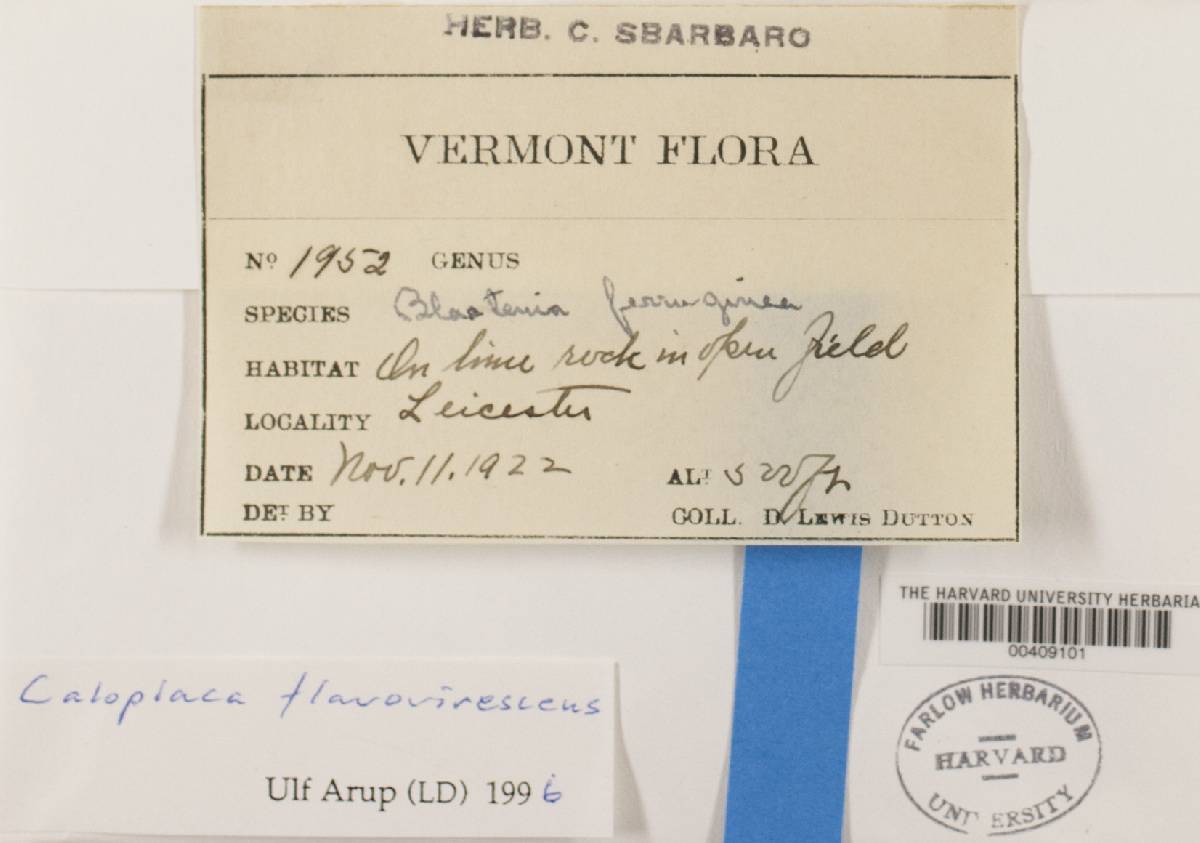 HERB. C. SBARBARO
VERMONT FLORA
Nº 1952 GENUS
SPECIES Blastenia ferruginea
HABITAT On lime rock in open field
LOCALITY Leicester
DATE Nov. 11. 1922 ALT. 500 ft
DET. BY COLL. D. LEWIS DUTTON
THE HARVARD UNIVERSITY HERBARIA
00409101
Caloplaca flavovirescens
Ulf Arup (LD) 1996
FARLOW HERBARIUM
HARVARD
UNIVERSITY